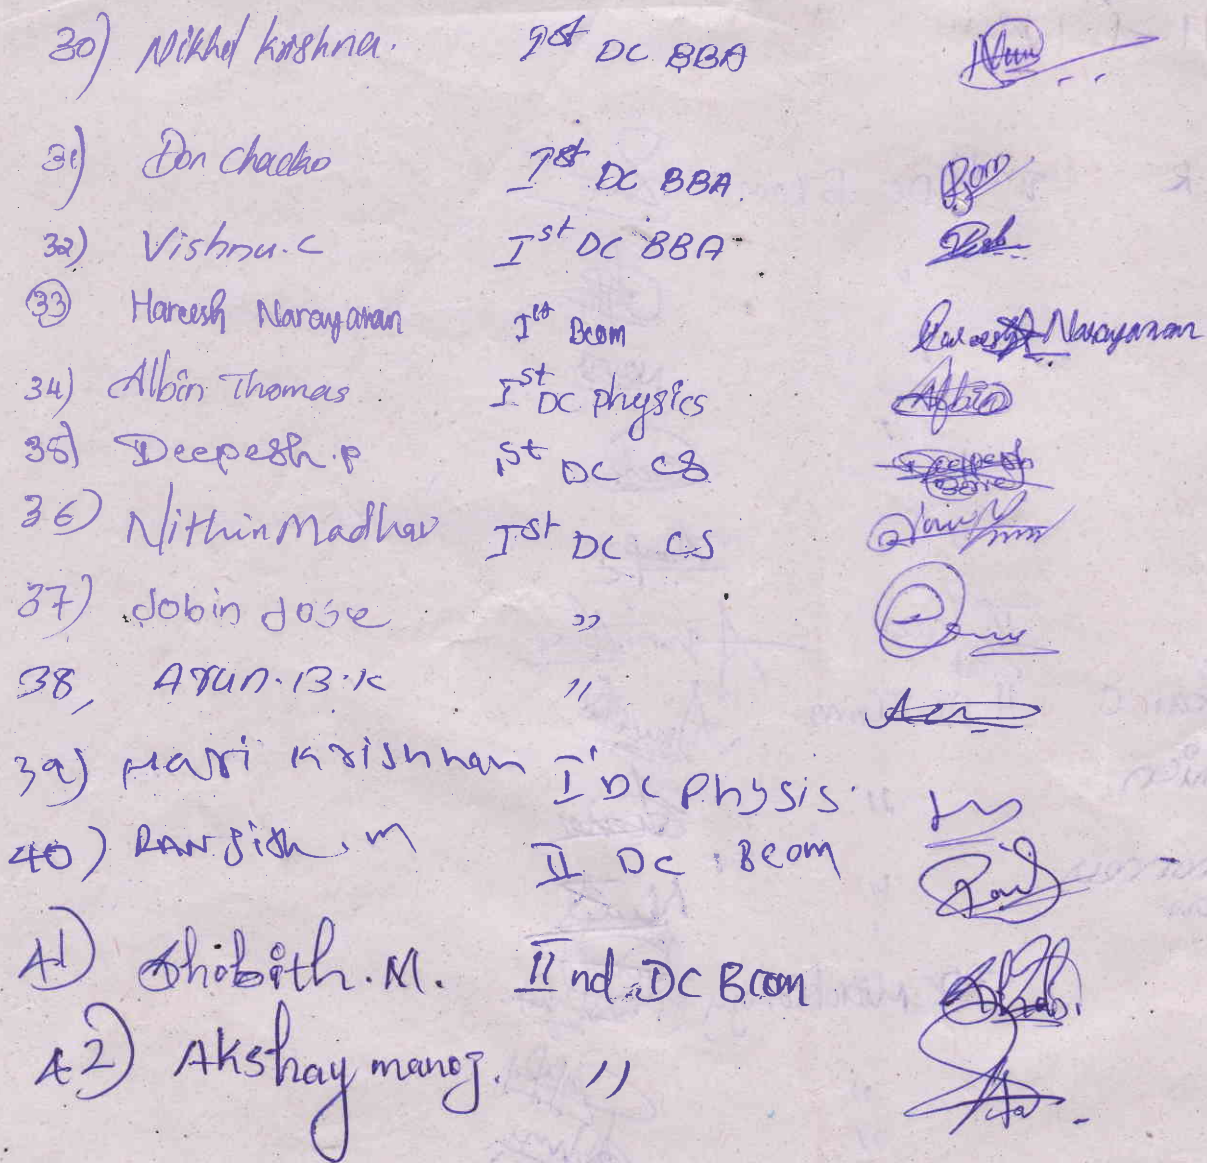 30) Nikhil Krishna. Ist DC BBA
31) Don Chacko Ist DC BBA.
32) Vishnu.C Ist DC BBA
33 Hareesh Narayanan Ist Bcom Hareesh Narayanan
34) Albin Thomas Ist DC Physics Albin
35) Deepesh.P Ist DC CS Deepesh
36) Nithin Madhav Ist DC CS
37) Jobin Jose ”
38, Arun.B.K ”
39) Hari Krishnan I DC Physis.
40) RANJith.M II DC Bcom
41) Shibith.M. II nd DC Bcom
42) Akshay manoj. ”